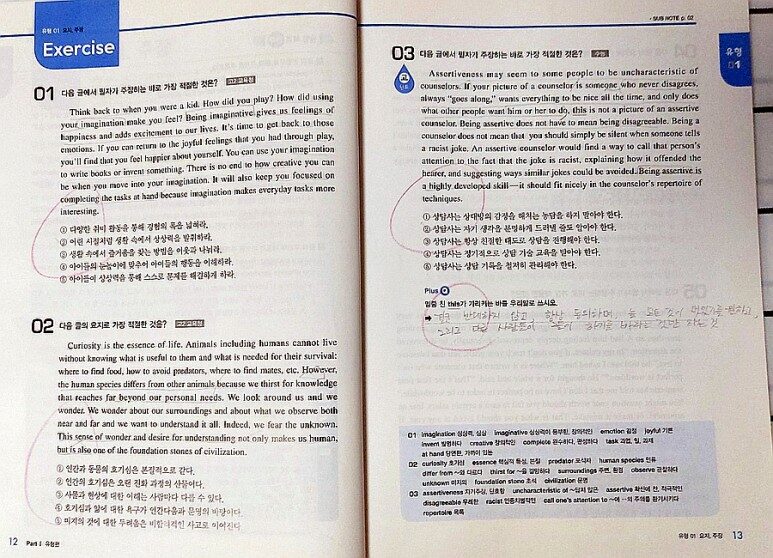 유형 01 요지, 주장
Exercise
01 다음 글에서 필자가 주장하는 바로 가장 적절한 것은? 고2 교육청
Think back to when you were a kid. How did you play? How did using
your imagination make you feel? Being imaginative gives us feelings of
happiness and adds excitement to our lives. It's time to get back to those
emotions. If you can return to the joyful feelings that you had through play,
you'll find that you feel happier about yourself. You can use your imagination
to write books or invent something. There is no end to how creative you can
be when you move into your imagination. It will also keep you focused on
completing the tasks at hand because imagination makes everyday tasks more
interesting.
① 다양한 취미 활동을 통해 경험의 폭을 넓혀라.
② 어린 시절처럼 생활 속에서 상상력을 발휘하라.
③ 생활 속에서 즐거움을 찾는 방법을 이웃과 나눠라.
④ 아이들의 눈높이에 맞추어 아이들의 행동을 이해하라.
⑤ 아이들이 상상력을 통해 스스로 문제를 해결하게 하라.
02 다음 글의 요지로 가장 적절한 것은? 고2 교육청
Curiosity is the essence of life. Animals including humans cannot live
without knowing what is useful to them and what is needed for their survival:
where to find food, how to avoid predators, where to find mates, etc. However,
the human species differs from other animals because we thirst for knowledge
that reaches far beyond our personal needs. We look around us and we
wonder. We wonder about our surroundings and about what we observe both
near and far and we want to understand it all. Indeed, we fear the unknown.
This sense of wonder and desire for understanding not only makes us human,
but is also one of the foundation stones of civilization.
① 인간과 동물의 호기심은 본질적으로 같다.
② 인간의 호기심은 오랜 진화 과정의 산물이다.
③ 사물과 현상에 대한 이해는 사람마다 다를 수 있다.
④ 호기심과 앎에 대한 욕구가 인간다움과 문명의 바탕이다.
⑤ 미지의 것에 대한 두려움은 비합리적인 사고로 이어진다.
12 Part I 유형편
SUB NOTE p. 02
유형
01
03 다음 글에서 필자가 주장하는 바로 가장 적절한 것은? 수능
고
난도
Assertiveness may seem to some people to be uncharacteristic of
counselors. If your picture of a counselor is someone who never disagrees,
always "goes along," wants everything to be nice all the time, and only does
what other people want him or her to do, this is not a picture of an assertive
counselor. Being assertive does not have to mean being disagreeable. Being a
counselor does not mean that you should simply be silent when someone tells
a racist joke. An assertive counselor would find a way to call that person's
attention to the fact that the joke is racist, explaining how it offended the
hearer, and suggesting ways similar jokes could be avoided. Being assertive is
a highly developed skill—it should fit nicely in the counselor's repertoire of
techniques.
① 상담사는 상대방의 감정을 해치는 농담을 하지 말아야 한다.
② 상담사는 자기 생각을 분명하게 드러낼 줄도 알아야 한다.
③ 상담사는 항상 친절한 태도로 상담을 진행해야 한다.
④ 상담사는 정기적으로 상담 기술 교육을 받아야 한다.
⑤ 상담사는 상담 기록을 철저히 관리해야 한다.
Plus Q
밑줄 친 this가 가리키는 바를 우리말로 쓰시오.
➡ 결코 반대하지 않고, 항상 동의하며, 늘 모든 것이 멋있기를 원하고,
그리고 다른 사람들이 하기를 바라는 것만 하는 것
01 imagination 상상력, 상상 imaginative 상상력이 풍부한, 창의적인 emotion 감정 joyful 기쁜
invent 발명하다 creative 창의적인 complete 완수하다, 완성하다 task 과업, 일, 과제
at hand 당면한, 가까이 있는
02 curiosity 호기심 essence 핵심적 특성, 본질 predator 포식자 human species 인류
differ from ~와 다르다 thirst for ~을 갈망하다 surroundings 주변, 환경 observe 관찰하다
unknown 미지의 foundation stone 초석 civilization 문명
03 assertiveness 자기주장, 단호함 uncharacteristic of ~답지 않은 assertive 확신에 찬, 적극적인
disagreeable 무례한 racist 인종차별적인 call one's attention to ~에 …의 주의를 환기시키다
repertoire 목록
유형 01 요지, 주장 13